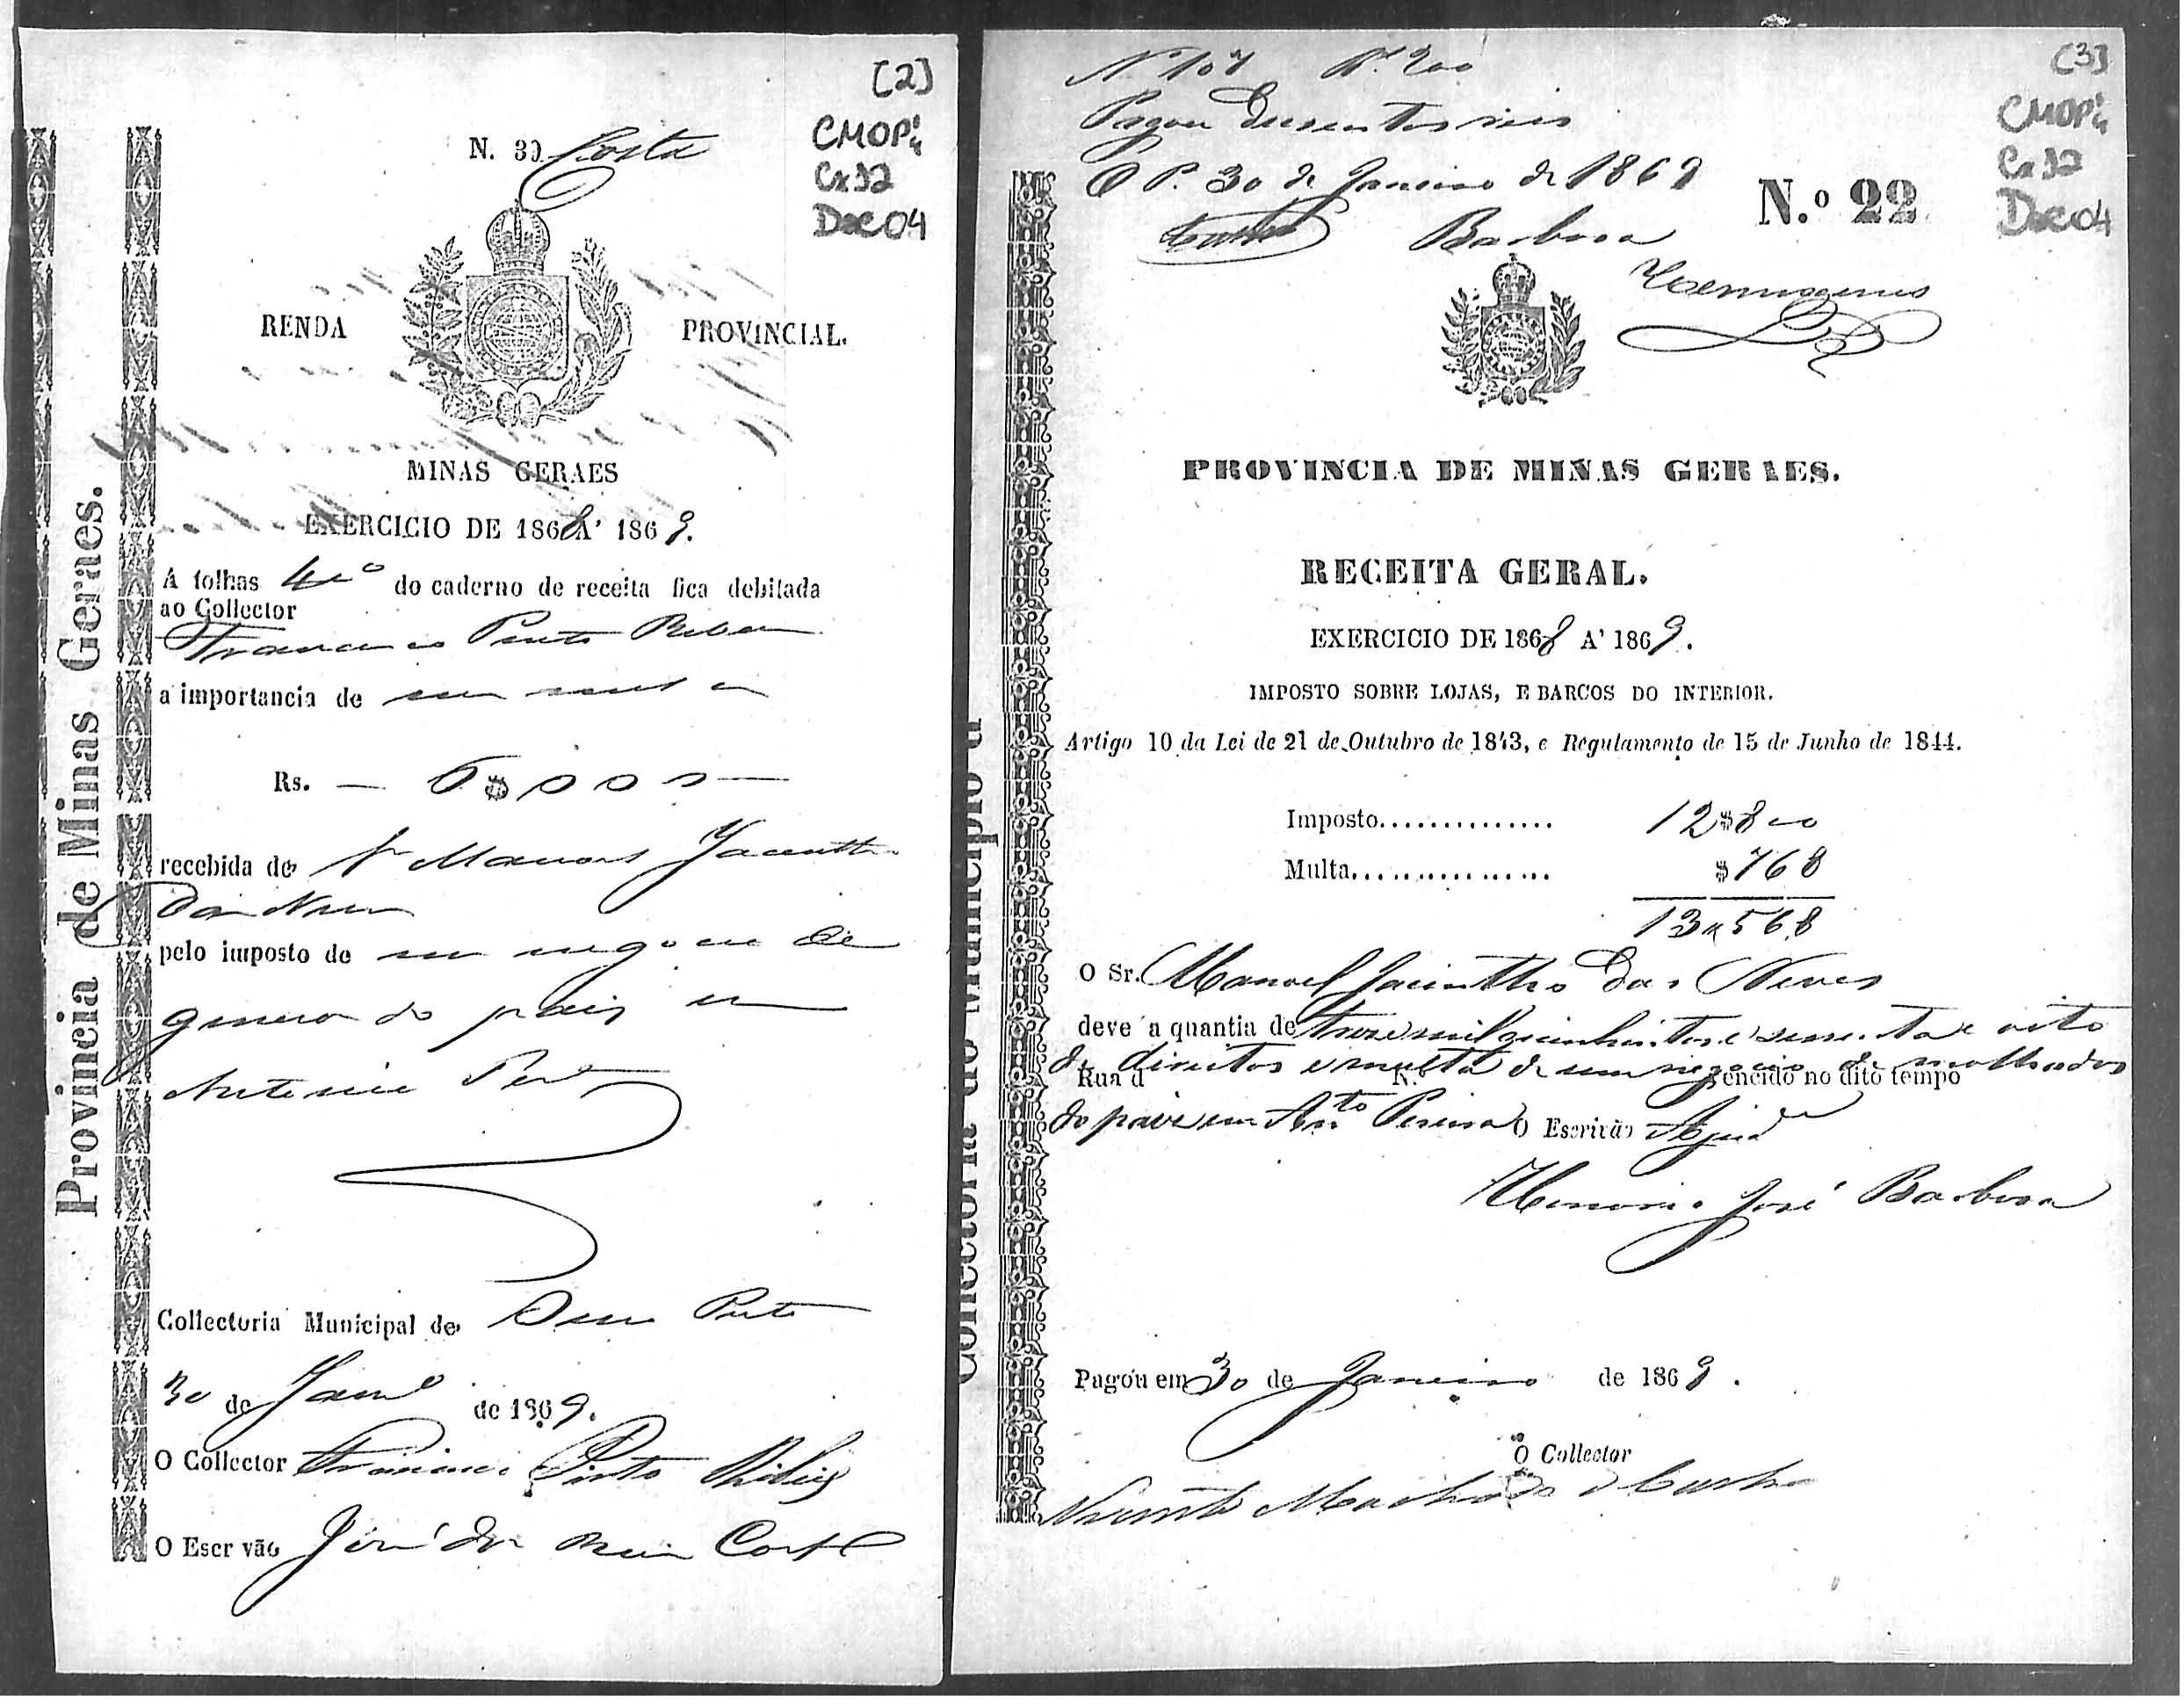 [2]
CMOP
Cx 32
Doc 04
N. 30 Costa
RENDA PROVINCIAL.
MINAS GERAES
EXERCICIO DE 1868 A' 1869.
A folhas do caderno de receita fica debitada
ao Collector
Francisco Pinto
a importancia de
Rs. — 6$000 —
recebida de Manoel Jacintho
das Neves
pelo imposto de um negocio de
generos do paiz em
Antonio Per.a
Collectoria Municipal de Ouro Preto
30 de Jan.o de 1869.
O Collector Francisco Pinto
O Escrvão José Costa
Provincia de Minas Geraes.
[3]
CMOP
Cx 32
Doc 04
N. 107 Rs. 200
Pagou dusentos reis
O P. 30 de Janeiro de 1869
Barbosa
N.o 22
PROVINCIA DE MINAS GERAES.
RECEITA GERAL.
EXERCICIO DE 1868 A' 1869.
IMPOSTO SOBRE LOJAS, E BARCOS DO INTERIOR.
Artigo 10 da Lei de 21 de Outubro de 1843, e Regulamento de 15 de Junho de 1844.
Imposto.............. 12$800
Multa................ $768
13$568
O Sr. Manoel Jacintho das Neves
deve a quantia de treze mil quinhentos e sessenta e oito
de direitos e multa de um negocio de molhados
Rua d N.o vencido no dito tempo
do paiz em An.to Pereira O Escrivão Ajud.e
José Barbosa
Pagou em 30 de Janeiro de 1869.
O Collector
Vicente Machado
Collectoria do Municipio d